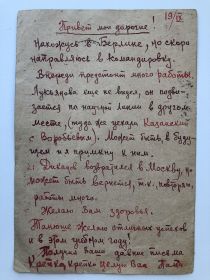 19/IX
Привет мои дорогие.
Нахожусь в Берлине, но скоро
направляюсь в командировку.
Впереди предстоит много работы.
Лукьянова еще не видел, он подви-
зается по нашей линии в другом
месте, (туда же уехали Казанский
с Воробьевым). Может быть в буду-
щем и я примкну к ним.
Дикцов возвратился в Москву, но
может быть вернется, т.к., повторяю,
работы много.
Желаю Вам здоровья.
Танюше желаю отличных успехов
и в этом учебном году.
Получил Ваши давние письма
Крепко, крепко целую Вас Папа